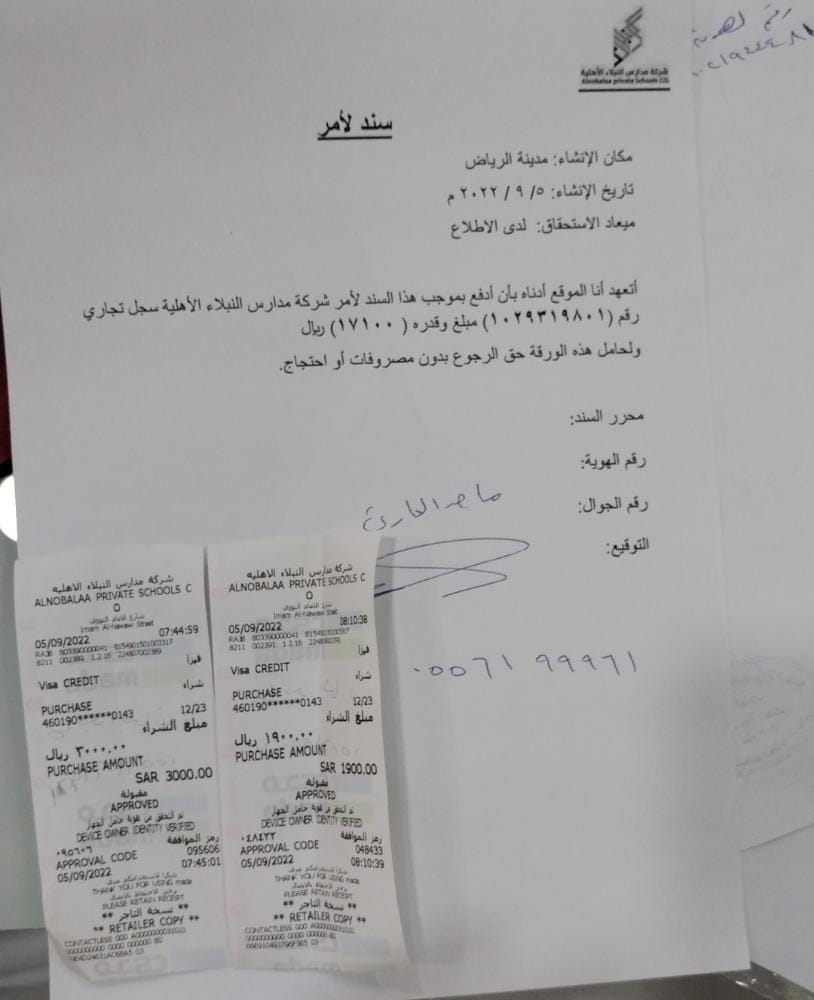 شركة مدارس النبلاء الأهلية
Alnobalaa private Schools CO.
رقم الهوية
سند لأمر
مكان الإنشاء: مدينة الرياض
تاريخ الإنشاء: ٥ / ٩ / ٢٠٢٢ م
ميعاد الاستحقاق: لدى الاطلاع
أتعهد أنا الموقع أدناه بأن أدفع بموجب هذا السند لأمر شركة مدارس النبلاء الأهلية سجل تجاري
رقم (١٠٢٩٣١٩٨٠١) مبلغ وقدره ( ١٧١٠٠ ) ريال
ولحامل هذه الورقة حق الرجوع بدون مصروفات أو احتجاج.
محرر السند:
رقم الهوية:
رقم الجوال:
ماجد الحارثي
التوقيع:
٠٥٥٦١٩٩٩٦١
شركة مدارس النبلاء الاهليه
ALNOBALAA PRIVATE SCHOOLS C
O
شارع الامام النووي
Imam Al-Nawawi Street
05/09/2022 07:44:59
RAJB 803390000041 8154901501003317
8211 002389 1.2.16 224807002389
فيزا
Visa CREDIT
شراء
PURCHASE
460190******0143 12/23
مبلغ الشراء
٣٠٠٠.٠٠ ريال
PURCHASE AMOUNT
SAR 3000.00
مقبولة
APPROVED
تم التحقق من هوية حامل الجهاز
DEVICE OWNER IDENTITY VERIFIED
رمز الموافقة
٠٩٥٦٠٦
APPROVAL CODE 095606
05/09/2022 07:45:01
شكرا لاستخدامكم مدى
THANK YOU FOR USING mada
يرجى الاحتفاظ بالايصال
PLEASE RETAIN RECEIPT
** نسخة التاجر **
** RETAILER COPY **
CONTACTLESS 000 A0000000031010
شركة مدارس النبلاء الاهليه
ALNOBALAA PRIVATE SCHOOLS C
O
شارع الامام النووي
Imam Al-Nawawi Street
05/09/2022 08:10:38
RAJB 803390000041
8211 002391 1.2.16
فيزا
Visa CREDIT
شراء
PURCHASE
460190******0143 12/23
مبلغ الشراء
١٩٠٠.٠٠ ريال
PURCHASE AMOUNT
SAR 1900.00
مقبولة
APPROVED
تم التحقق من هوية حامل الجهاز
DEVICE OWNER IDENTITY VERIFIED
رمز الموافقة
٠٤٨٤٣٣
APPROVAL CODE 048433
05/09/2022 08:10:39
شكرا لاستخدامكم مدى
THANK YOU FOR USING mada
يرجى الاحتفاظ بالايصال
PLEASE RETAIN RECEIPT
** نسخة التاجر **
** RETAILER COPY **
CONTACTLESS 000 A0000000031010